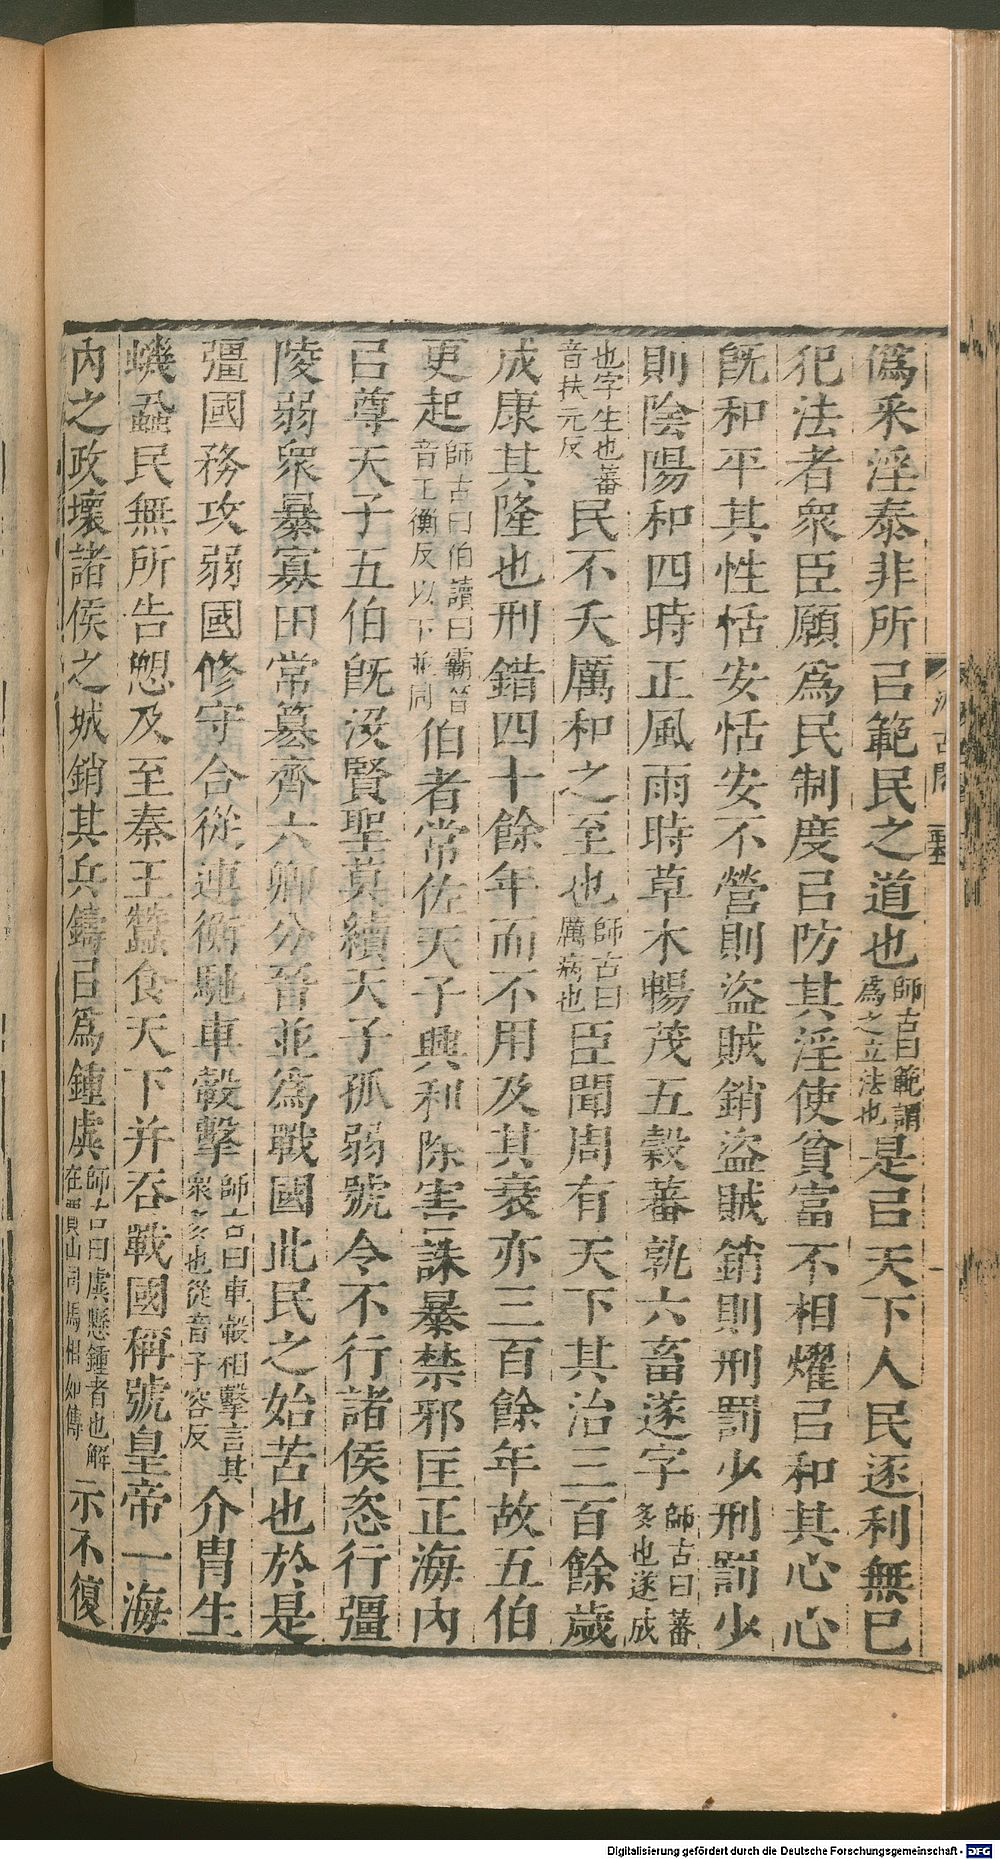 僞采淫泰非所㠯範民之道也師古曰範謂爲之立法也是㠯天下人民逐利無已
犯法者衆臣願爲民制度㠯防其淫使貧富不相燿㠯和其心心
旣和平其性恬安恬安不營則盜賊銷盜賊銷則刑罰少刑罰少
則陰陽和四時正風雨時草木暢茂五穀蕃孰六畜遂字師古曰蕃多也遂成
也字生也蕃音扶元反民不夭厲和之至也師古曰厲病也臣聞周有天下其治三百餘歲
成康其隆也刑錯四十餘年而不用及其衰亦三百餘年故五伯
更起師古曰伯讀曰霸音工衡反以下並同伯者常佐天子興利除害誅暴禁邪匡正海內
㠯尊天子五伯旣沒賢聖莫續天子孤弱號令不行諸侯恣行彊
陵弱衆暴寡田常篡齊六卿分晉並爲戰國此民之始苦也於是
彊國務攻弱國修守合從連衡馳車轂擊師古曰車轂相擊言其衆多也從音子容反介胄生
蟣蝨民無所告愬及至秦王蠶食天下并吞戰國稱號皇帝一海
內之政壞諸侯之城銷其兵鑄㠯爲鍾虡師古曰虡懸鍾者也解在賈山司馬相如傳示不復
汲古閣
Digitalisierung gefördert durch die Deutsche Forschungsgemeinschaft - DFG